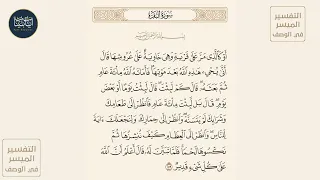 التفسير
الميسر
في الوصف
سورة البقرة
أو كالذي مر على قرية وهي خاوية على عروشها قال
أنى يحي هذه الله بعد موتها فأماته الله مائة عام
ثم بعثه قال كم لبثت قال لبثت يوما أو بعض
يوم قال بل لبثت مائة عام فانظر إلى طعامك
وشرابك لم يتسنه وانظر إلى حمارك ولنجعلك ءاية
للناس وانظر إلى العظام كيف ننشزها ثم
نكسوها لحما فلما تبين له قال أعلم أن الله
على كل شيء قدير
التفسير
الميسر
في الوصف